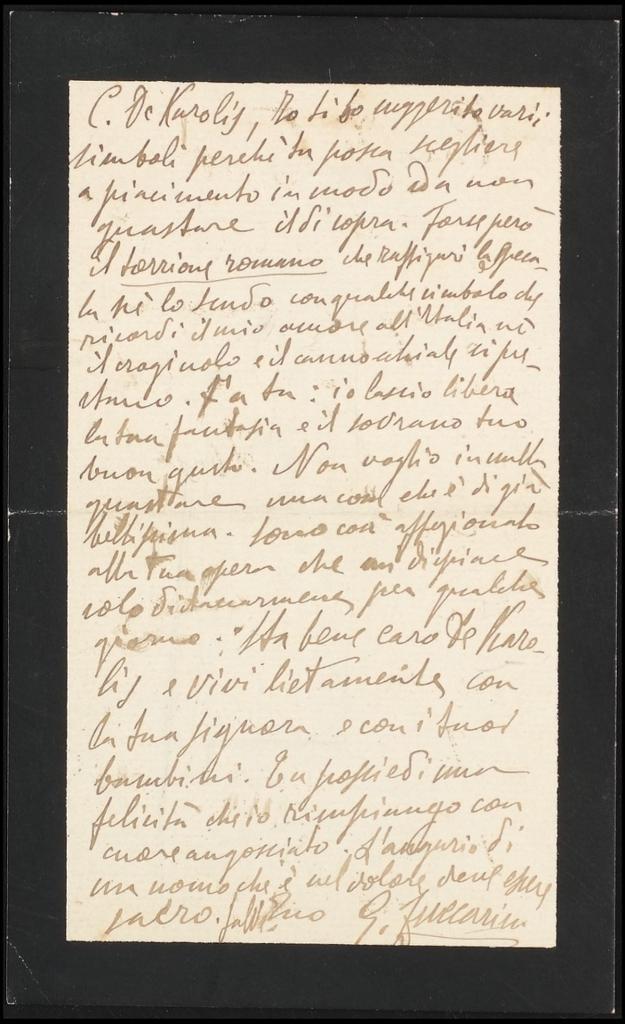 C. De Karolis, Io ti ho suggerito varii
simboli perchè tu possa scegliere
a piacimento in modo da non
guastare il di sopra. Forse però
il torrione romano che raffiguri la Speco-
la nè lo scudo con qualche simbolo che
ricordi il mio amore all'Italia nè
il crogiuolo e il cannocchiale si pre-
stano. Fa tu: io lascio libera
la tua fantasia e il sovrano tuo
buon gusto. Non voglio in nulla
guastare una cosa che è di già
bellissima. Sono così affezionato
alla tua opera che mi dispiace
solo distaccarmene per qualche
giorno. Sta bene caro De Karo-
lis e vivi lietamente con
la tua signora e con i tuoi
bambini. Tu possiedi una
felicità che io rimpiango con
cuore angosciato. L'augurio di
un uomo che è nel dolore deve essere
sacro. Tuo G. Zuccarini